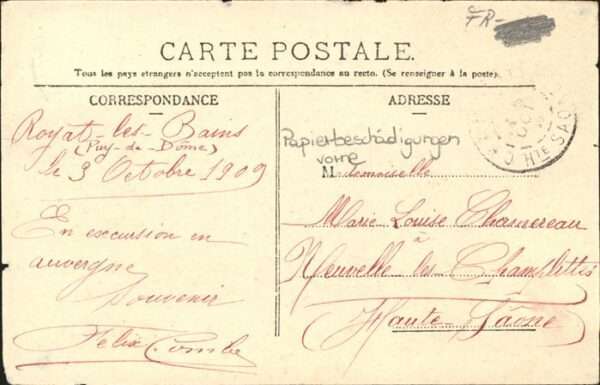 FR-
CARTE POSTALE.
Tous les pays etrangers n'acceptent pas la correspondance au recto. (Se renseigner à la poste).
CORRESPONDANCE
Royat-les-Bains
(Puy-de-Dôme)
le 3 Octobre 1909
En excursion en
auvergne
Souvenir
Félix Combe
ADRESSE
Papierbeschädigungen
vorne
Mademoiselle
Marie Louise Chamereau
à
Neuvelle-les-Champlittes
Haute-Saône
HTE SAO